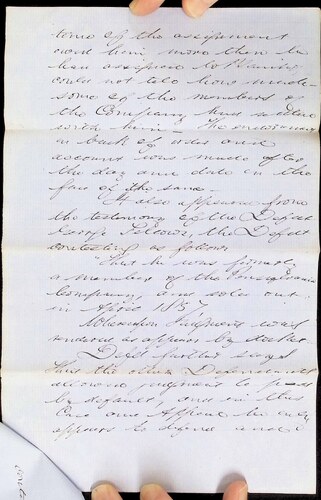 time of the assignment
owed him more than he
has assigned to Plaintiff
could not tell how much
some of the members of
the Company had settled
with him — The endorsement
on back of order and
account was made after
the day and date on the
face of the same.
It also appears from
the testimony of the Defdt
George the Defdt
contesting as follows
"That he was formerly
a member of the Pennsylvania
Company, and sold out
in April 1857
Whereupon Judgment was
rendered as appears by docket.
Defdt further says
that the other Defendants
allowed judgment to pass
by default, and in this
Case and Appeal he only
appears to defend